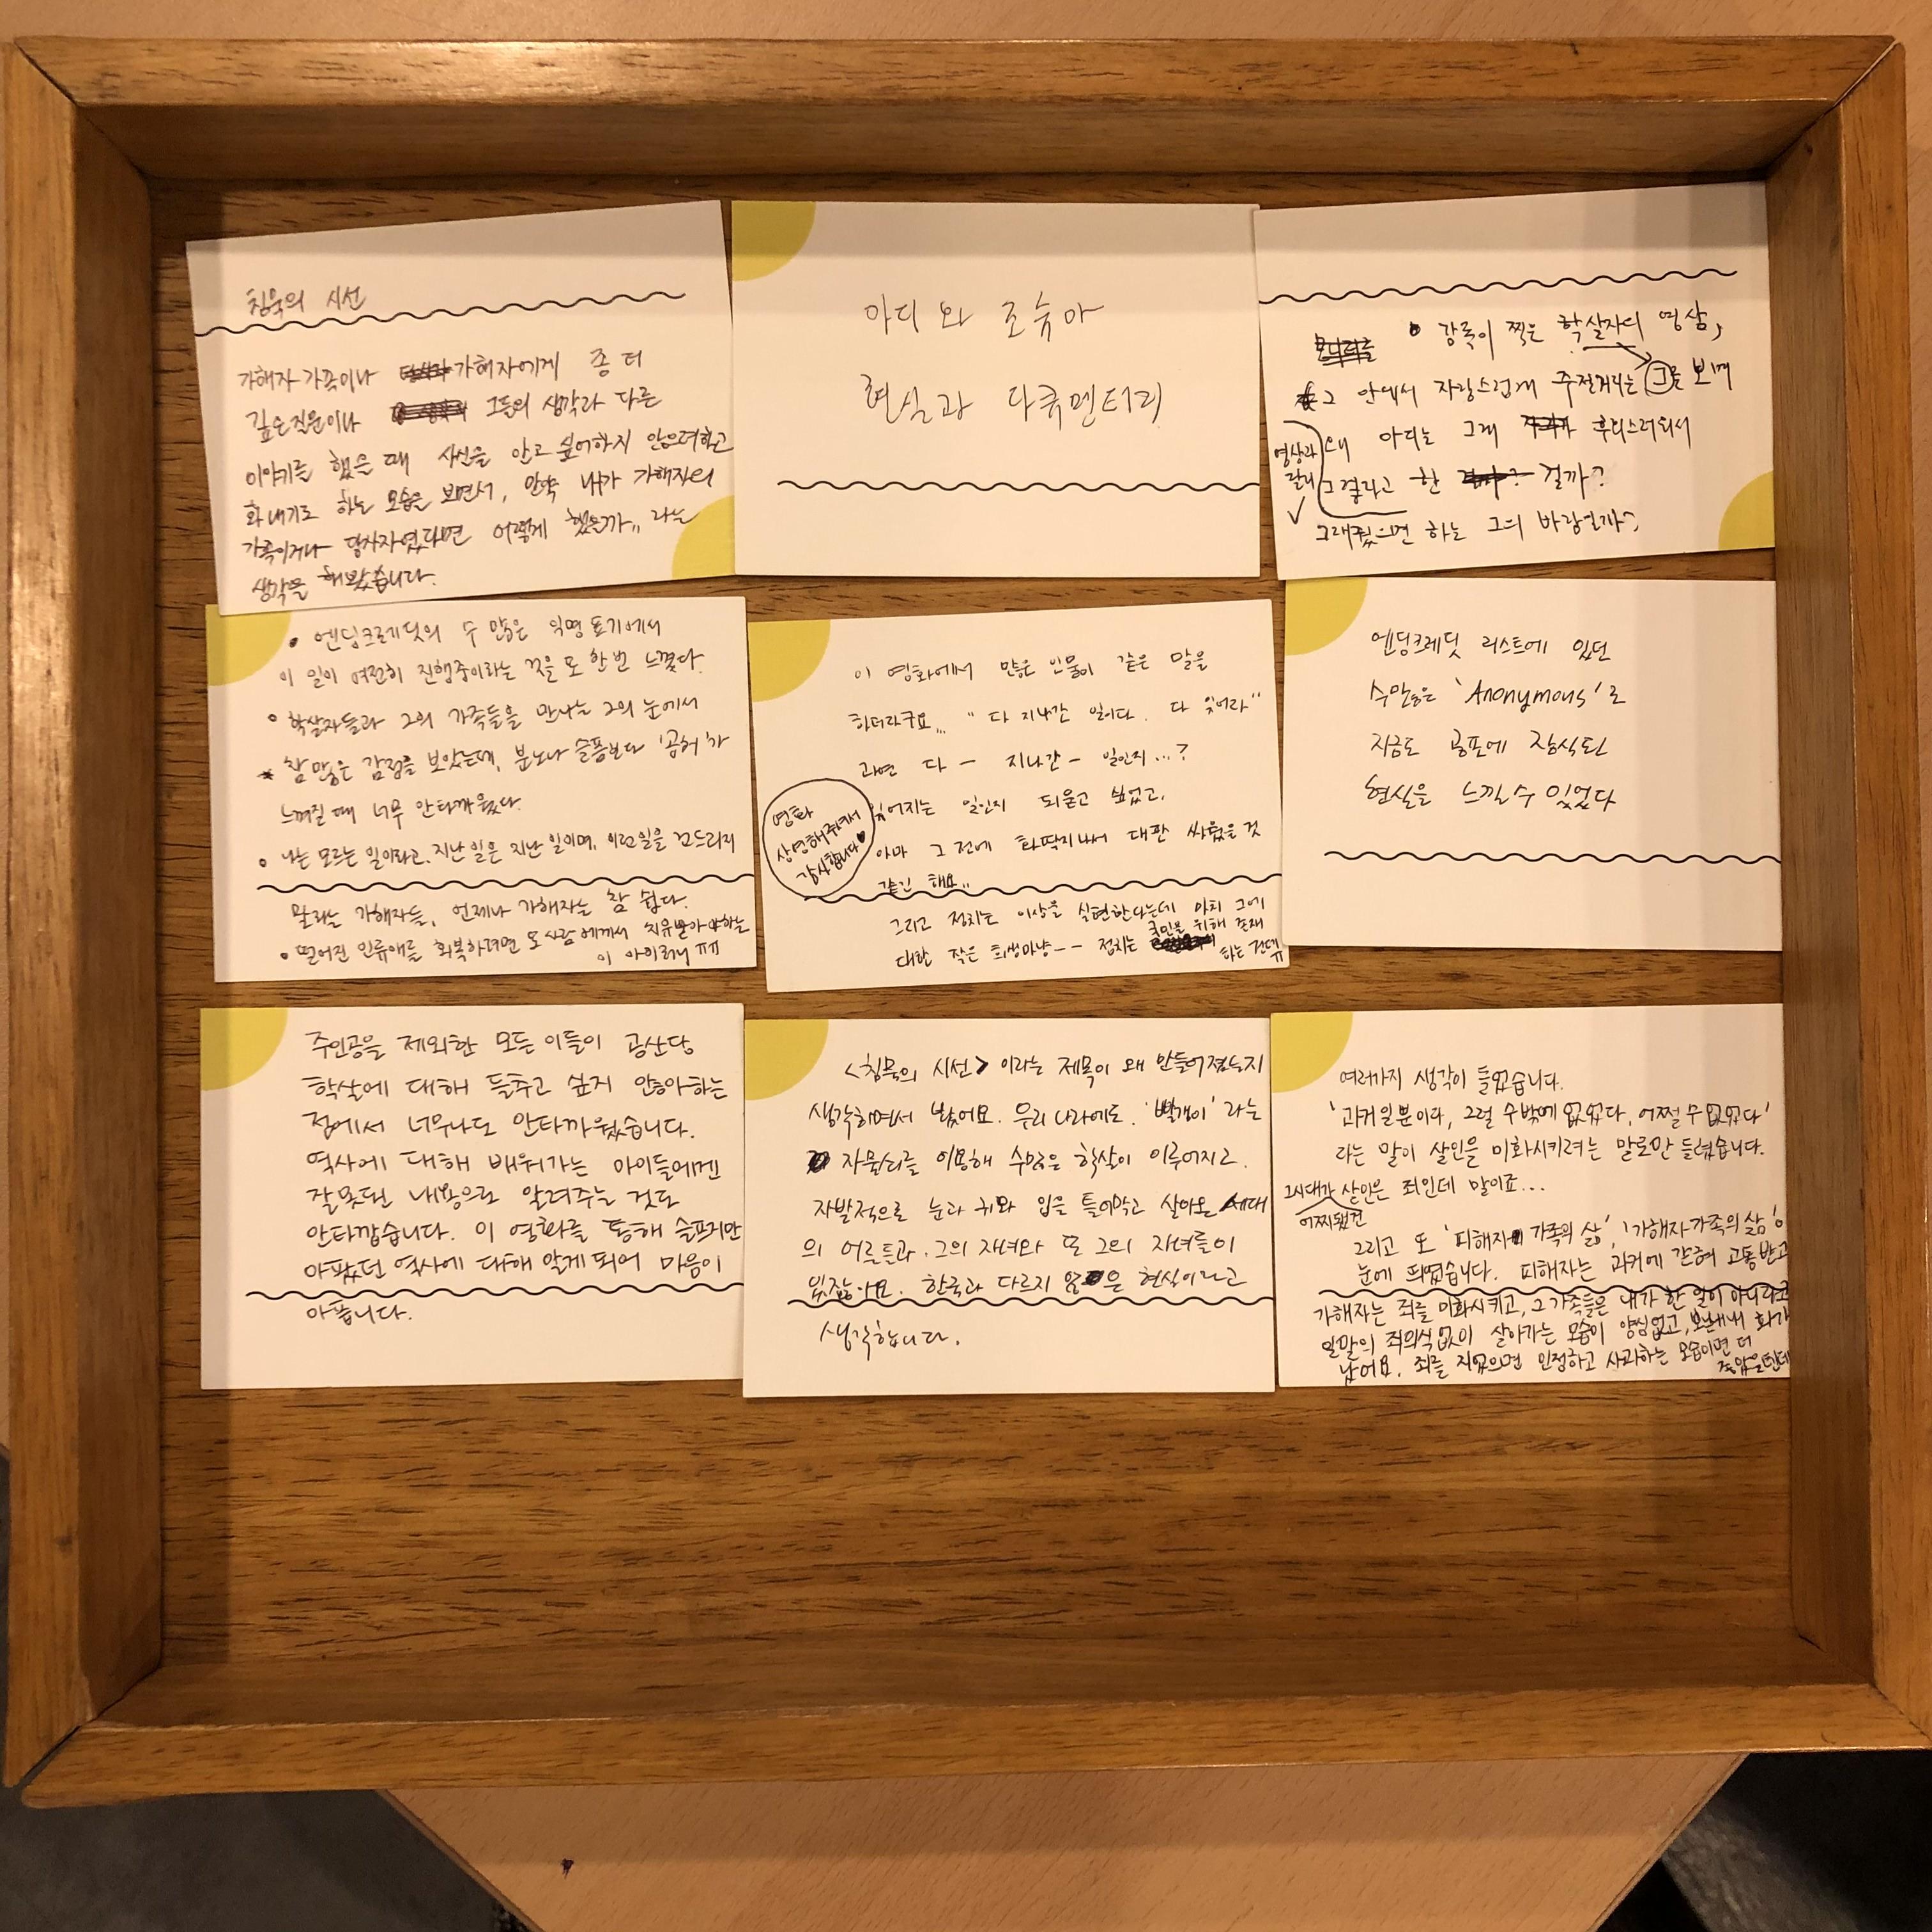 침묵의 시선
가해자 가족이나 가해자에게 좀 더
깊은 질문이나 그들의 생각과 다른
이야기를 했을 때 사실을 안고 싶어하지 않으려하고
화내기도 하는 모습을 보면서, 만약 내가 가해자의
가족이거나 당사자였다면 어떻게 했을까,, 라는
생각을 해봤습니다.
아디와 조슈아
현실과 다큐멘터리
감독이 찍은 학살자의 영상,
그 안에서 자랑스럽게 주절거리는 그를 보며
왜 아디는 그가 후회스러워서
그랬다고 한 걸까?
영상과
달리
그래줬으면 하는 그의 바람일까?
• 엔딩크레딧의 수 많은 익명 표기에서
이 일이 여전히 진행중이라는 것을 또 한번 느꼈다.
• 학살자들과 그의 가족들을 만나는 그의 눈에서
참 많은 감정을 보았는데, 분노나 슬픔보다 '공허'가
느껴질 때 너무 안타까웠다.
• 나는 모르는 일이라고, 지난 일은 지난 일이며, 이런일을 건드리지
말라는 가해자들, 언제나 가해자는 참 쉽다.
• 떨어진 인류애를 회복하려면 또 사람에게서 치유받아야하는
이 아이러니 ㅠㅠ
이 영화에서 많은 인물이 같은 말을
하더라구요,,, "다 지나간 일이다. 다 잊어라"
과연 다 - 지나간 - 일인지...?
잊어지는 일인지 되묻고 싶었고,
아마 그 전에 화딱지나서 대판 싸웠을 것
같긴 해요,,
영화
상영해주셔서
감사합니다♥
그리고 정치는 이상을 실현한다는데 마치 그에
대한 작은 희생마냥-- 정치는 국민을 위해 존재
하는 건데 ㅠ
엔딩크레딧 리스트에 있던
수많은 'Anonymous'로
지금도 공포에 잠식된
현실을 느낄 수 있었다
주인공을 제외한 모든 이들이 공산당
학살에 대해 들추고 싶지 않아하는
점에서 너무나도 안타까웠습니다.
역사에 대해 배워가는 아이들에겐
잘못된 내용으로 알려주는 것도
안타깝습니다. 이 영화를 통해 슬프지만
아팠던 역사에 대해 알게 되어 마음이
아픕니다.
<침묵의 시선> 이라는 제목이 왜 만들어졌는지
생각하면서 봤어요. 우리 나라에도 '빨갱이' 라는
자물쇠를 이용해 수많은 학살이 이루어지고
자발적으로 눈과 귀와 입을 틀어막고 살아온 세대
의 어른들과, 그의 자녀와 또 그의 자녀들이
있잖아요. 한국과 다르지 않은 현실이라고
생각합니다.
여러가지 생각이 들었습니다.
'과거일뿐이다, 그럴 수밖에 없었다, 어쩔 수 없었다'
라는 말이 살인을 미화시키려는 말로만 들렸습니다.
그시대가 어찌됐건 살인은 죄인데 말이죠...
그리고 또 '피해자 가족의 삶', '가해자가족의 삶'이
눈에 띄었습니다. 피해자는 과거에 갇혀 고통받고
가해자는 죄를 미화시키고, 그 가족들은 내가 한 일이 아니라고
일말의 죄의식없이 살아가는 모습이 양심없고, 보는내내 화가
났어요. 죄를 지었으면 인정하고 사과하는 모습이면 더
좋았을텐데